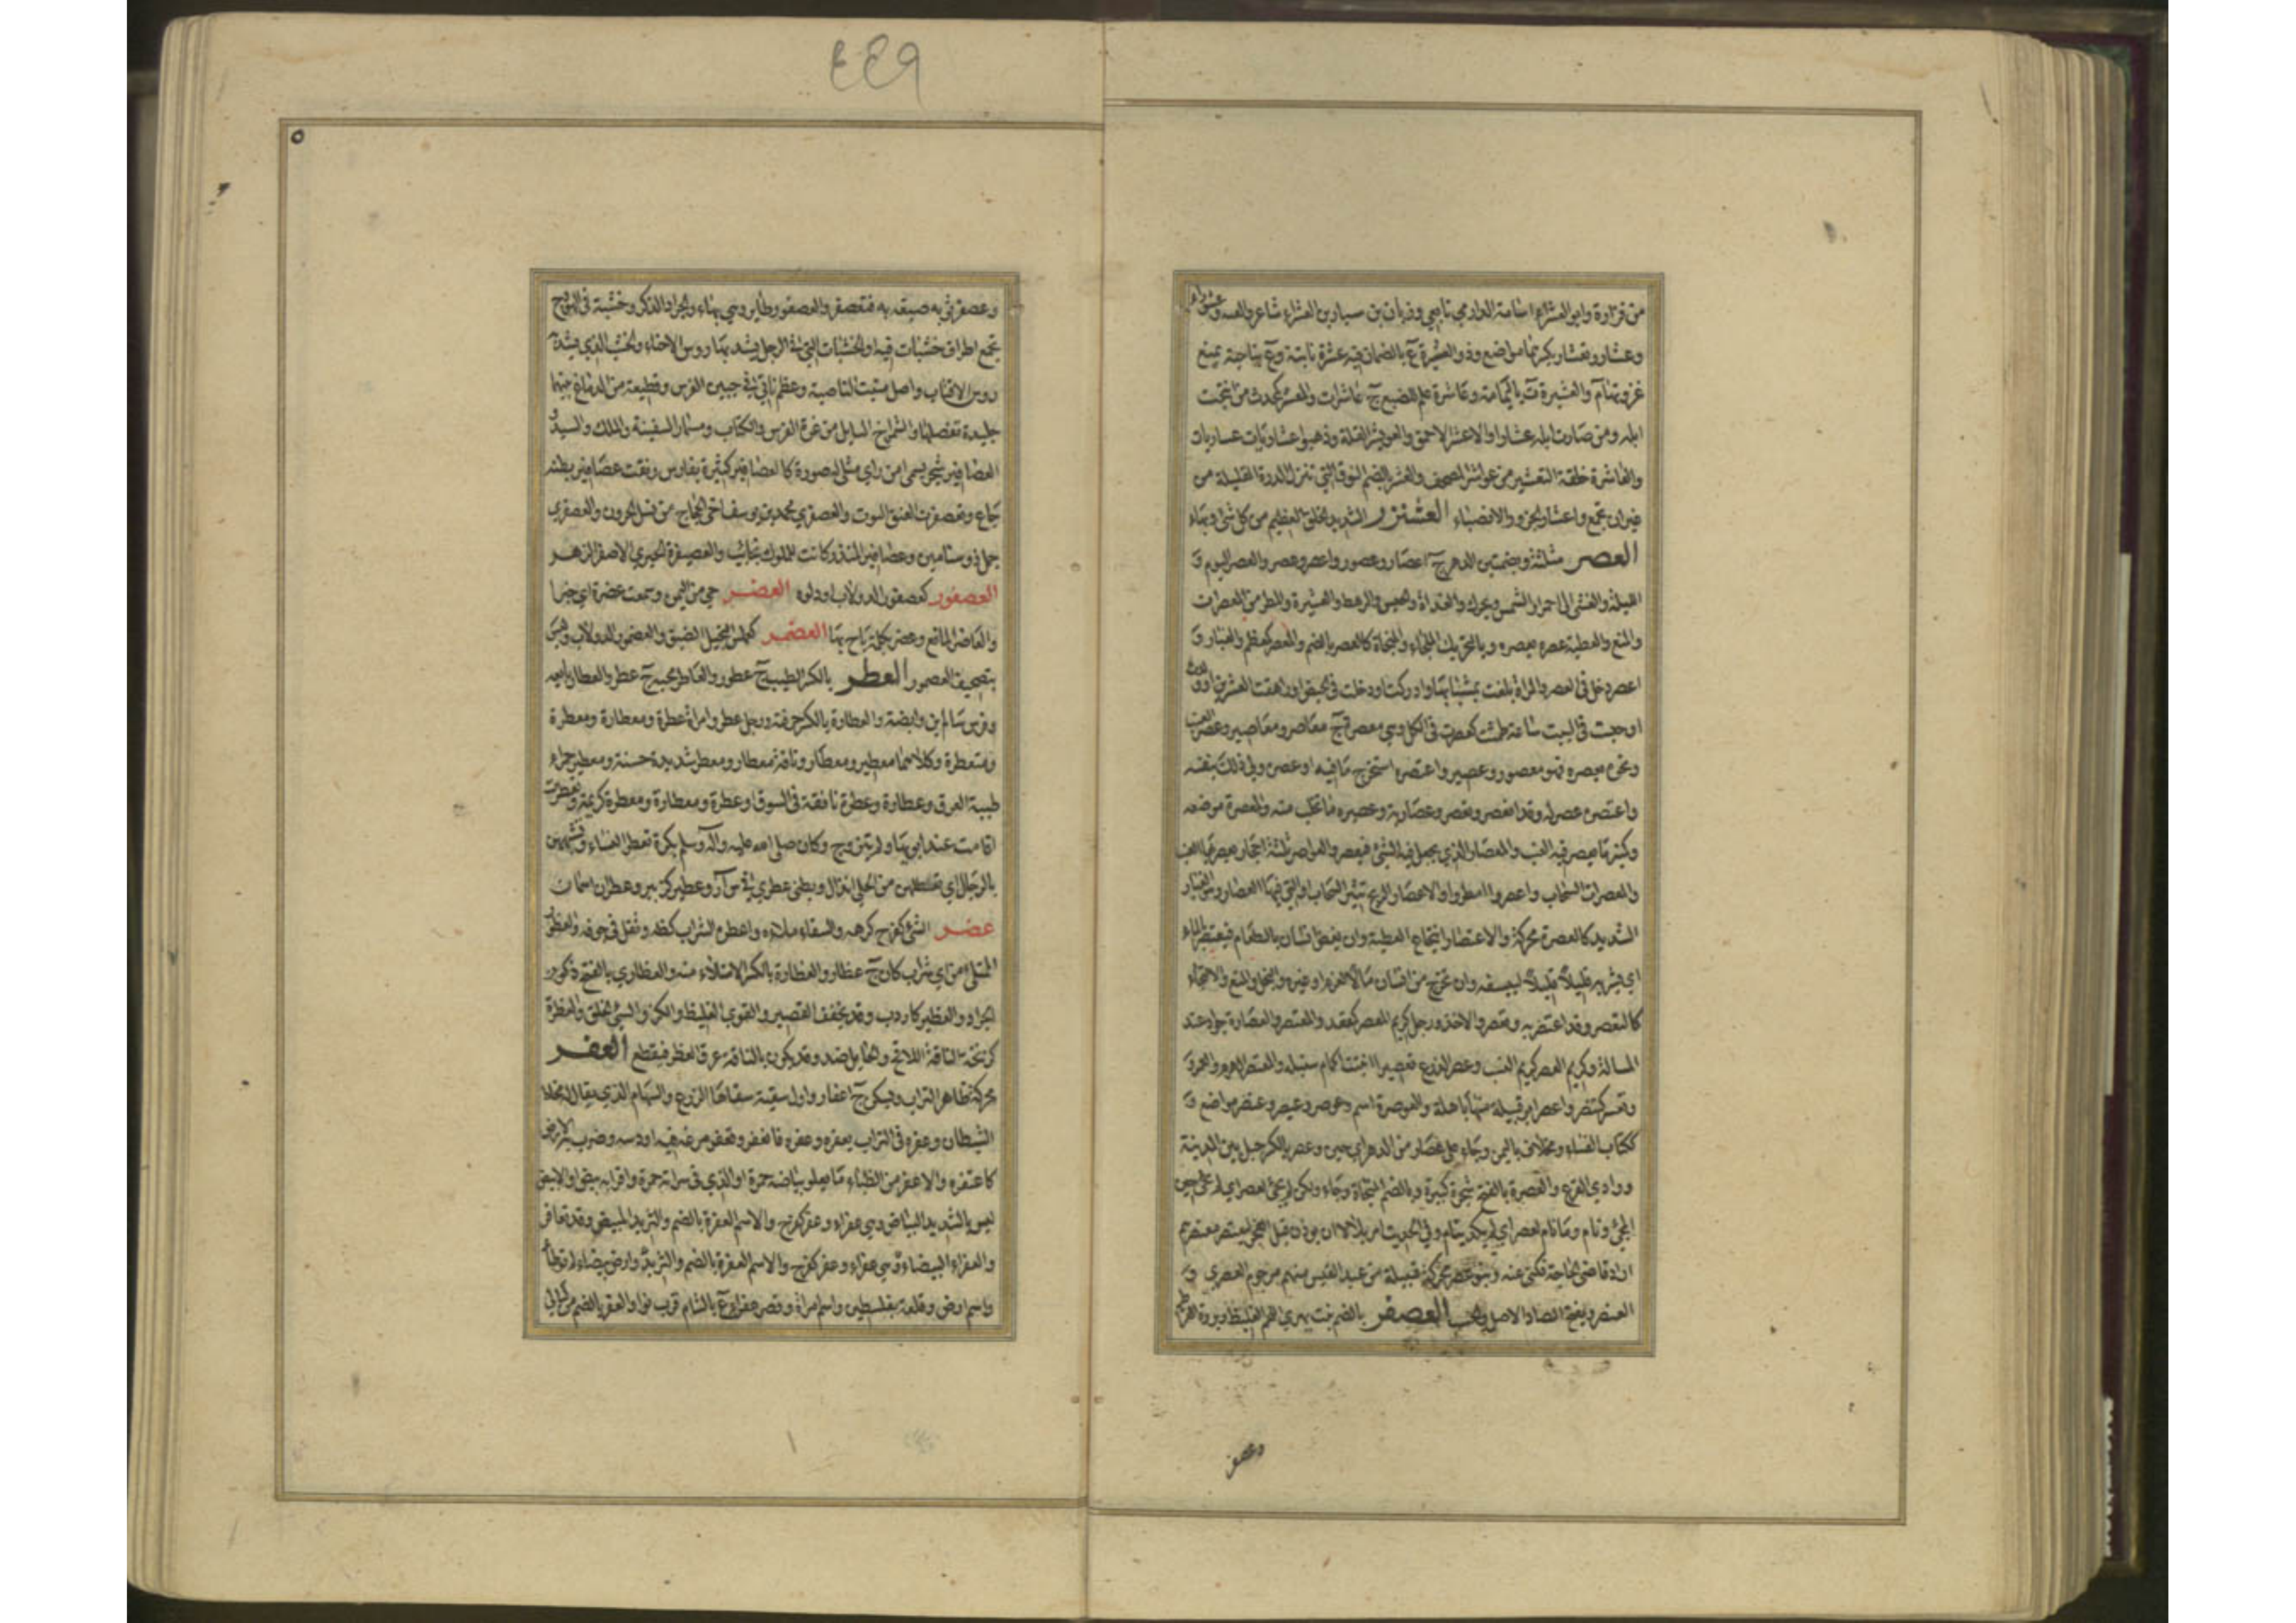 ٤٤٩
من فزارة وابو العشراء اسامة الدارمي تابعي وزبان بن سيار بن العشراء شاعر والعشراء
وعشار وتعشار بكسرهما مواضع وذو العشيرة ع بالصمان فيه عشرة نابتة وع بناحية ينبع
غزوتها م والعشيرة ة باليمامة وعاشرة علم للضبع ج عاشرات والمعشر كمحدث من انتجت
ابله ومن صارت ابله عشارا والاعشر الاحمق والعويشر القلة وذهبوا عشاريات عساريات
والعاشرة حلقة التعشير من عواشر المصحف والعشر بالضم النوق التي تنزل الدرة القليلة من
غير ان تجتمع واعشار الجزور الانصباء العشنزر الشديد الخلق العظيم من كل شئ وبهاء
العصر مثلثة وبضمتين الدهر ج اعصار وعصور واعصر وعصر والعصر اليوم و
الليلة والعشي الى احمرار الشمس ويحرك والغداة والحبس والرهط والعشيرة والمطر من المعصرات
والمنع والعطية عصره يعصره وبالتحريك الملجاء والمنجاة كالعصر بالضم والمعصر كمعظم والغبار و
اعصر دخل في العصر والمراة بلغت شبابها وادركت او دخلت في الحيض او راهقت العشرين او ولدت
او حبست في البيت ساعة طمثت كعصرت في الكل وهي معصر ج معاصر ومعاصير وعصر العنب
ونحوه يعصره فهو معصور وعصير واعتصره استخرج ما فيه او عصره ولي ذلك بنفسه
واعتصره عصر له وقد انعصر وتعصر وعصارته وعصيره ما تحلب منه والمعصرة موضعه
وكمنبر ما يعصر فيه العنب والمعصار الذي يجعل فيه الشئ فيعصر والعواصر ثلثة احجار يعصر بها العنب
والمعصرات السحاب واعصروا امطروا والاعصار الريح تثير السحاب او التي فيها العصار وهو الغبار
الشديد كالعصرة محركة والاعتصار انتجاع العطية وان يغص انسان بالطعام فيعتصر بالماء
اي يشربه قليلا قليلا ليسيغه وان تخرج من انسان مالا بغرم او غيره والبخل والمنع والالتجاء
كالتعصر وقد اعتصر به وتعصر والاخذ ورجل كريم المعصر كمقعد والمعتصر والعصارة جواد عند
المسالة وكريم العصر كريم النسب وعصر الزرع تعصيرا انبتت اكمام سنبله والمعتصر الهرم والعمر و
وتعسر كتنصر واعصر ابو قبيلة منها باهلة والعوصرة اسم وعوصر وعيصر وعنصر مواضع و
ككتاب الفساء ومخلاف باليمن وجاء على عصار من الدهر اي حين وعصر بالكسر جبل بين المدينة
ووادي الفرع والعصرة بالفتح شجرة كبيرة وبالضم المنجاة وجاء ولكن لم يجئ لعصر اي لم يجئ حين
المجئ ونام وما نام لعصر اي لم يكد ينام وفي الحديث امر بلالا ان يوذن قبل الفجر ليعتصر معتصرهم
اراد قاضي الحاجة فكنى عنه وبنو عصر محركة قبيلة من عبد القيس منهم مرجوم العصري و
العنصر وبفتح الصاد الاصل والحسب العصفر بالضم نبت يهري اللحم الغليظ وبزره القرطم
وعصفر
٥
وعصفر ثوبه صبغه به فتعصفر والعصفور طاير وهي بهاء والجراد الذكر وخشبة في الهودج
تجمع اطراف خشبات فيه او الخشبات التي في الرحل يشد بها روس الاحناء والخشب الذي يشد به
روس الاقتاب واصل منبت الناصية وعظم ناتئ في جبين الفرس وقطيعة من الدماغ بينهما
جليدة تفصلها والشمراخ السايل من غرة الفرس والكتاب ومسمار السفينة والملك والسيد و
العصافير شجر يسمى من راى مثلي له صورة كالعصافير كثيرة بفارس ونقت عصافير بطنه
جاع وتعصفرت العنق التوت والعصفري محمد بن يوسف اخي الحجاج من نسل الحرون والعصفري
جمل ذو سنامين وعصافير المنذر كانت للملوك نجائب والعصيفرة الخيري الاصفر الزهر
العصمور كعصفور الدولاب او دلوه العضر حي من اليمن وسمعت عضرة اي خبرا
والعاضر المانع وعضر بكلمة باح بها العضمر كعملس البخيل الضيق والعضمور الدولاب وليس
بتصحيف العصمور العطر بالكسر الطيب ج عطور والعاطر محبه ج عطر والعطار بايعه
وفرس سالم بن وابصة والعطارة بالكسر حرفته ورجل عطر وامراة عطرة ومعطارة ومعطرة
ومتعطرة وكلاهما معطير ومعطار وناقة معطار ومعطر شديدة حسنة ومعطير حمراء
طيبة العرق وعطارة وعطرة نافقة في السوق او عطرة ومعطارة ومعطرة كريمة وتعطرت
اقامت عند ابويها ولم تتزوج وكان صلى الله عليه وآله وسلم يكره تعطر النساء وتشبههن
بالرجال اي تعطلهن من الحلي ابدال وبطني عطري في س ا ر وعطير كزبير وعطران اسمان
عظر الشئ كفرح كرهه والسقاء ملاءه واعظره الشراب كظه وثقل في جوفه والعظور
الممتلئ من اي شراب كان ج عظار والعظارة بالكسر الامتلاء منه والعظاري بالفتح ذكور
الجراد والعظير كاردب وقد يخفف القصير والقوي الغليظ والكز والسيئ الخلق والعظرة
كزنخة الناقة اللاقح والحايل ضد وقد يكون بالناقة عرق العظر فيقطع العفر
محركة ظاهر التراب ويسكن ج اعفار واول سقية سقاها الزرع والسهام الذي يقال له مخاط
الشيطان وعفره في التراب يعفره وعفره فانعفر وتعفر مرغه فيه او دسه وضرب به الارض
كاعتفره والاعفر من الظباء ما يعلو بياضه حمرة او الذي في سراته حمرة واقرابه بيض او الابيض
ليس بالشديد البياض وهي عفراء وعفر كفرح والاسم العفرة بالضم والثريد المبيض وقد تعافر
والعفراء البيضاء وهي عفراء وعفر كفرح والاسم العفرة بالضم والثريد وارض بيضاء لم توطأ
واسم ارض وقلعة بفلسطين واسم امراة وقصر عفراء ع بالشام قرب نوا والعفر بالضم من ليالي